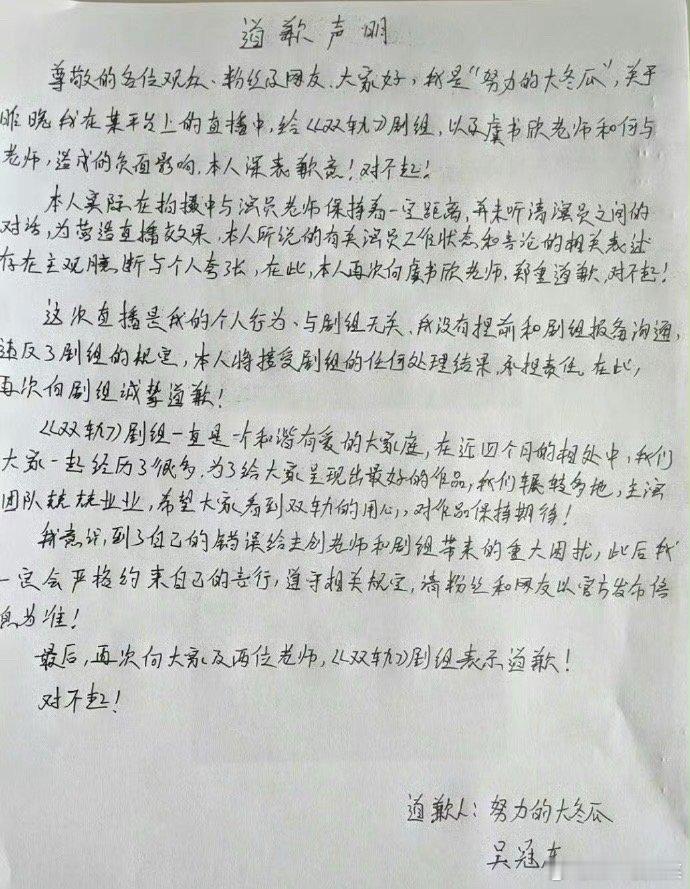 道歉声明
尊敬的各位观众、粉丝及网友、大家好，我是“努力的大冬瓜”，关于
昨晚我在某平台上的直播中，给《双轨》剧组，以及虞书欣老师和何与
老师，造成的负面影响，本人深表歉意！对不起！
本人实际在拍摄中与演员老师保持着一定距离，并未听清演员之间的
对话，为营造直播效果，本人所说的有关演员工作状态和言论的相关表述
存在主观臆断与个人夸张，在此，本人再次向虞书欣老师，郑重道歉，对不起！
这次直播是我的个人行为、与剧组无关、我没有提前和剧组报备沟通，
违反了剧组的规定，本人将接受剧组的任何处理结果，承担责任，在此，
再次向剧组诚挚道歉！
《双轨》剧组一直是一个和谐有爱的大家庭，在近四个月的相处中，我们
大家一起经历了很多，为了给大家呈现出最好的作品，我们辗转多地，主演
团队兢兢业业，希望大家看到双轨的用心，对作品保持期待！
我意识到了自己的错误给主创老师和剧组带来的重大困扰，此后我
一定会严格约束自己的言行，遵守相关规定，请粉丝和网友以官方发布信
息为准！
最后，再次向大家及两位老师，《双轨》剧组表示道歉！
对不起！
道歉人：努力的大冬瓜
吴冠东